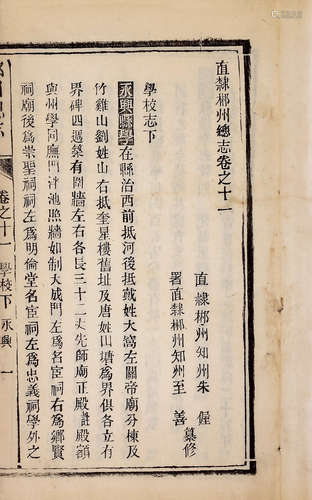 直隸郴州總志卷之十一
直隸郴州知州朱偓
署直隸郴州知州至善
纂修
學校志下
永興縣學在縣治西前抵河後抵戴姓大窩左關帝廟分棟及
竹雞山劉姓山右抵奎星樓舊址及唐姓山塘爲界俱各立有
界碑四週築有圍牆左右各長三十二丈先師廟正殿
殿額
與州學同廡門泮池照牆如制大成門左爲名宦祠右爲鄉賢
祠廟後爲崇聖祠祠左爲明倫堂名宦祠左爲忠義祠學外之
卷之十一
學校下
永興
一